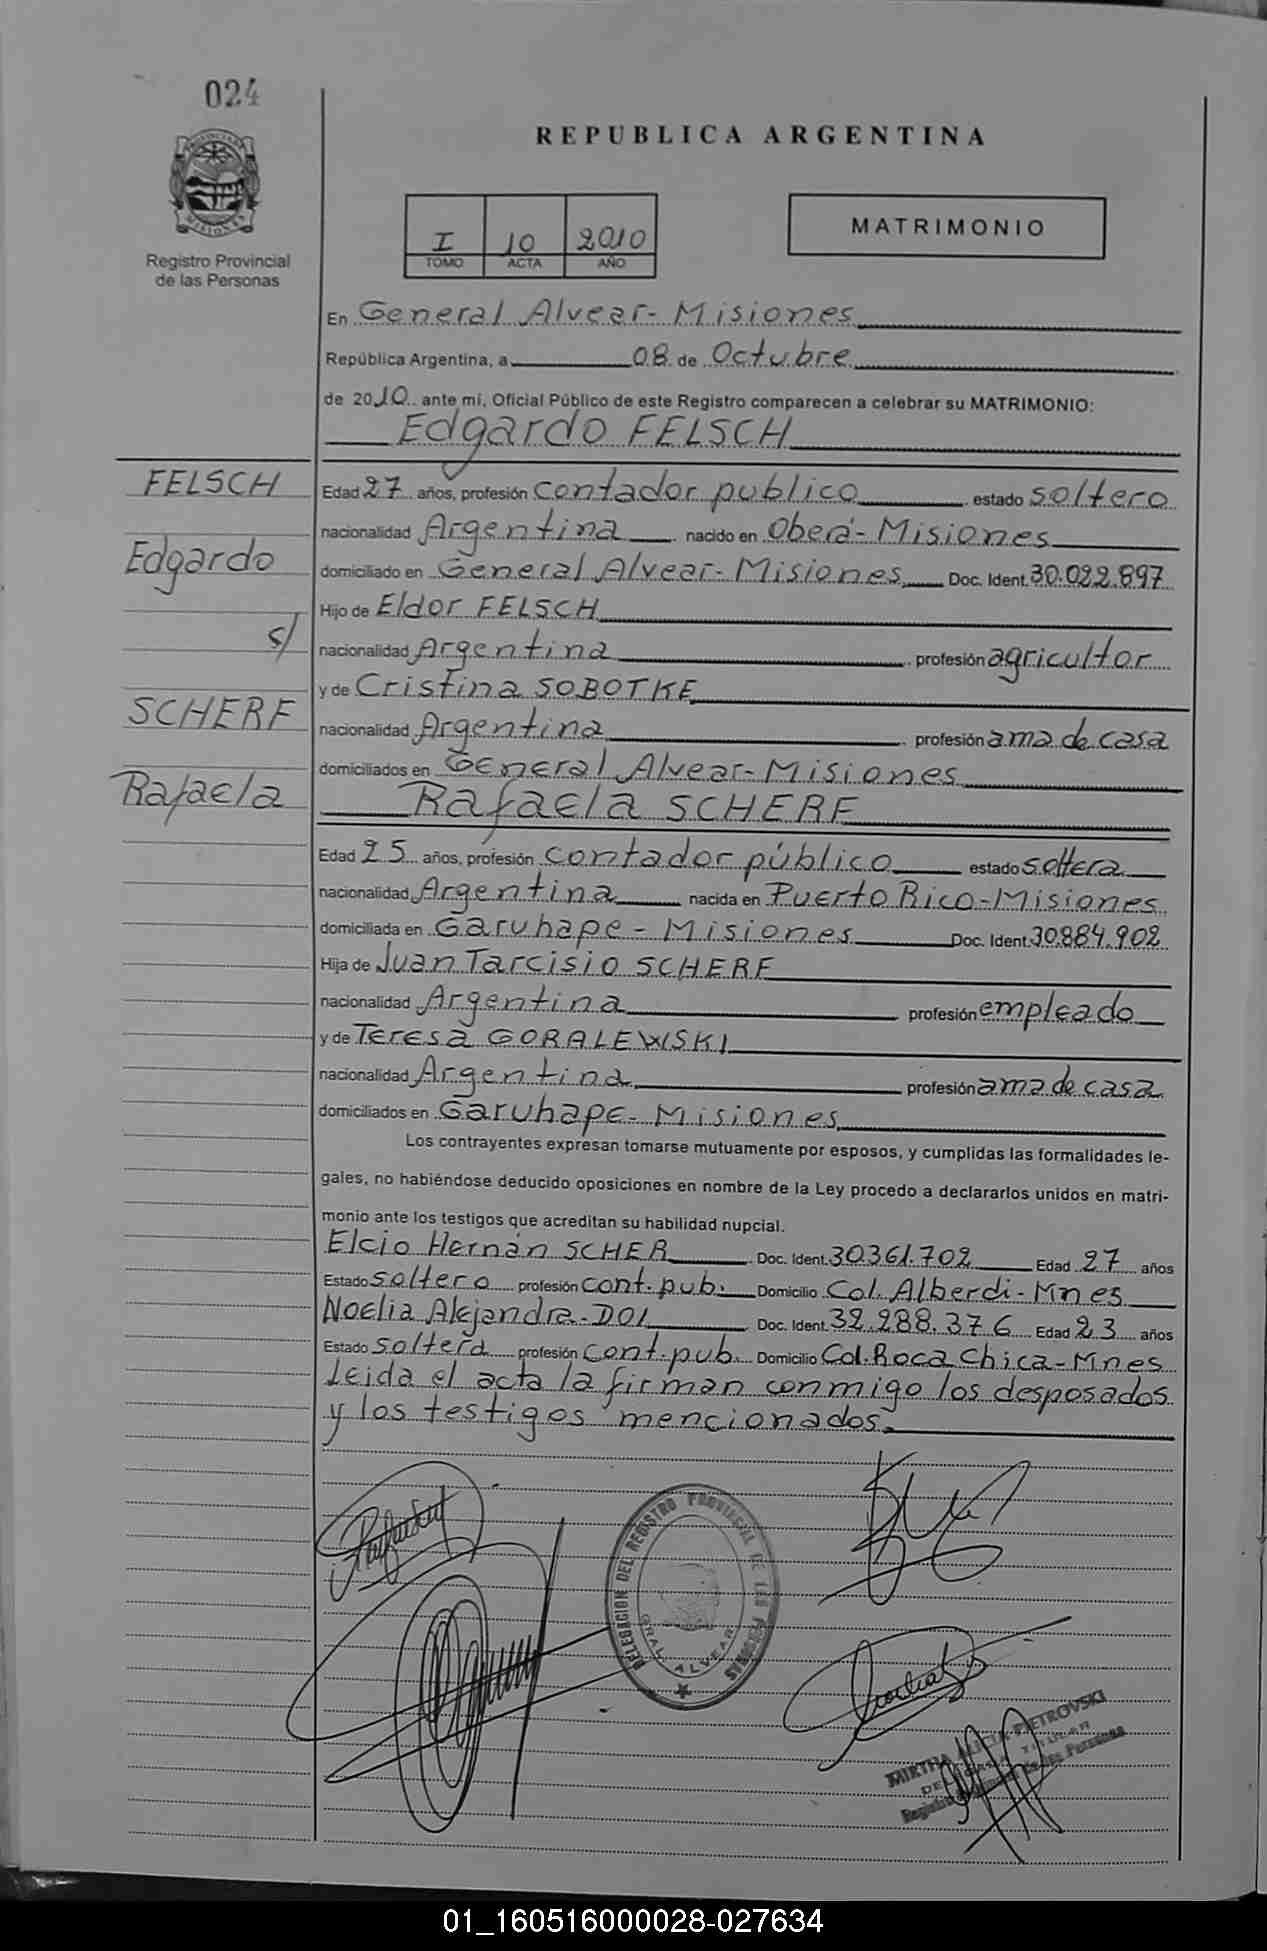 024
REPUBLICA ARGENTINA
PROVINCIA
MISIONES
Registro Provincial
de las Personas
I 10 2010
TOMO ACTA AÑO
MATRIMONIO
En General Alvear- Misiones
República Argentina, a 08 de Octubre
de 2010 ante mi, Oficial Público de este Registro comparecen a celebrar su MATRIMONIO:
Edgardo FELSCH
FELSCH
Edgardo
s/
SCHERF
Rafaela
Edad 27 años, profesión contador publico estado soltero
nacionalidad Argentina nacido en Oberá- Misiones
domiciliado en General Alvear- Misiones Doc. Ident. 30.022.897
Hijo de Eldor FELSCH
nacionalidad Argentina profesión agricultor
y de Cristina SOBOTKE
nacionalidad Argentina profesión ama de casa
domiciliados en General Alvear- Misiones
Rafaela SCHERF
Edad 25 años, profesión contador público estado soltera
nacionalidad Argentina nacida en Puerto Rico-Misiones
domiciliada en Garuhape - Misiones Doc. Ident. 30.884.902
Hija de Juan Tarcisio SCHERF
nacionalidad Argentina profesión empleado
y de Teresa GORALEWISKI
nacionalidad Argentina profesión ama de casa
domiciliados en Garuhape- Misiones
Los contrayentes expresan tomarse mutuamente por esposos, y cumplidas las formalidades le-
gales, no habiéndose deducido oposiciones en nombre de la Ley procedo a declararlos unidos en matri-
monio ante los testigos que acreditan su habilidad nupcial.
Elcio Hernán SCHER Doc. Ident. 30.361.702 Edad 27 años
Estado soltero profesión cont. pub. Domicilio Col. Alberdi - Mnes
Noelia Alejandra DOI Doc. Ident. 32.288.376 Edad 23 años
Estado soltera profesión cont. pub. Domicilio Col. Roca Chica - Mnes
Leida el acta la firman conmigo los desposados
y los testigos mencionados.
DELEGACION DEL REGISTRO PROVINCIAL DE LAS PERSONAS
GRAL. ALVEAR
MIRTHA ALICIA PIETROVSKI
DELEGADA TITULAR
Registro de las Personas
01_160516000028-027634